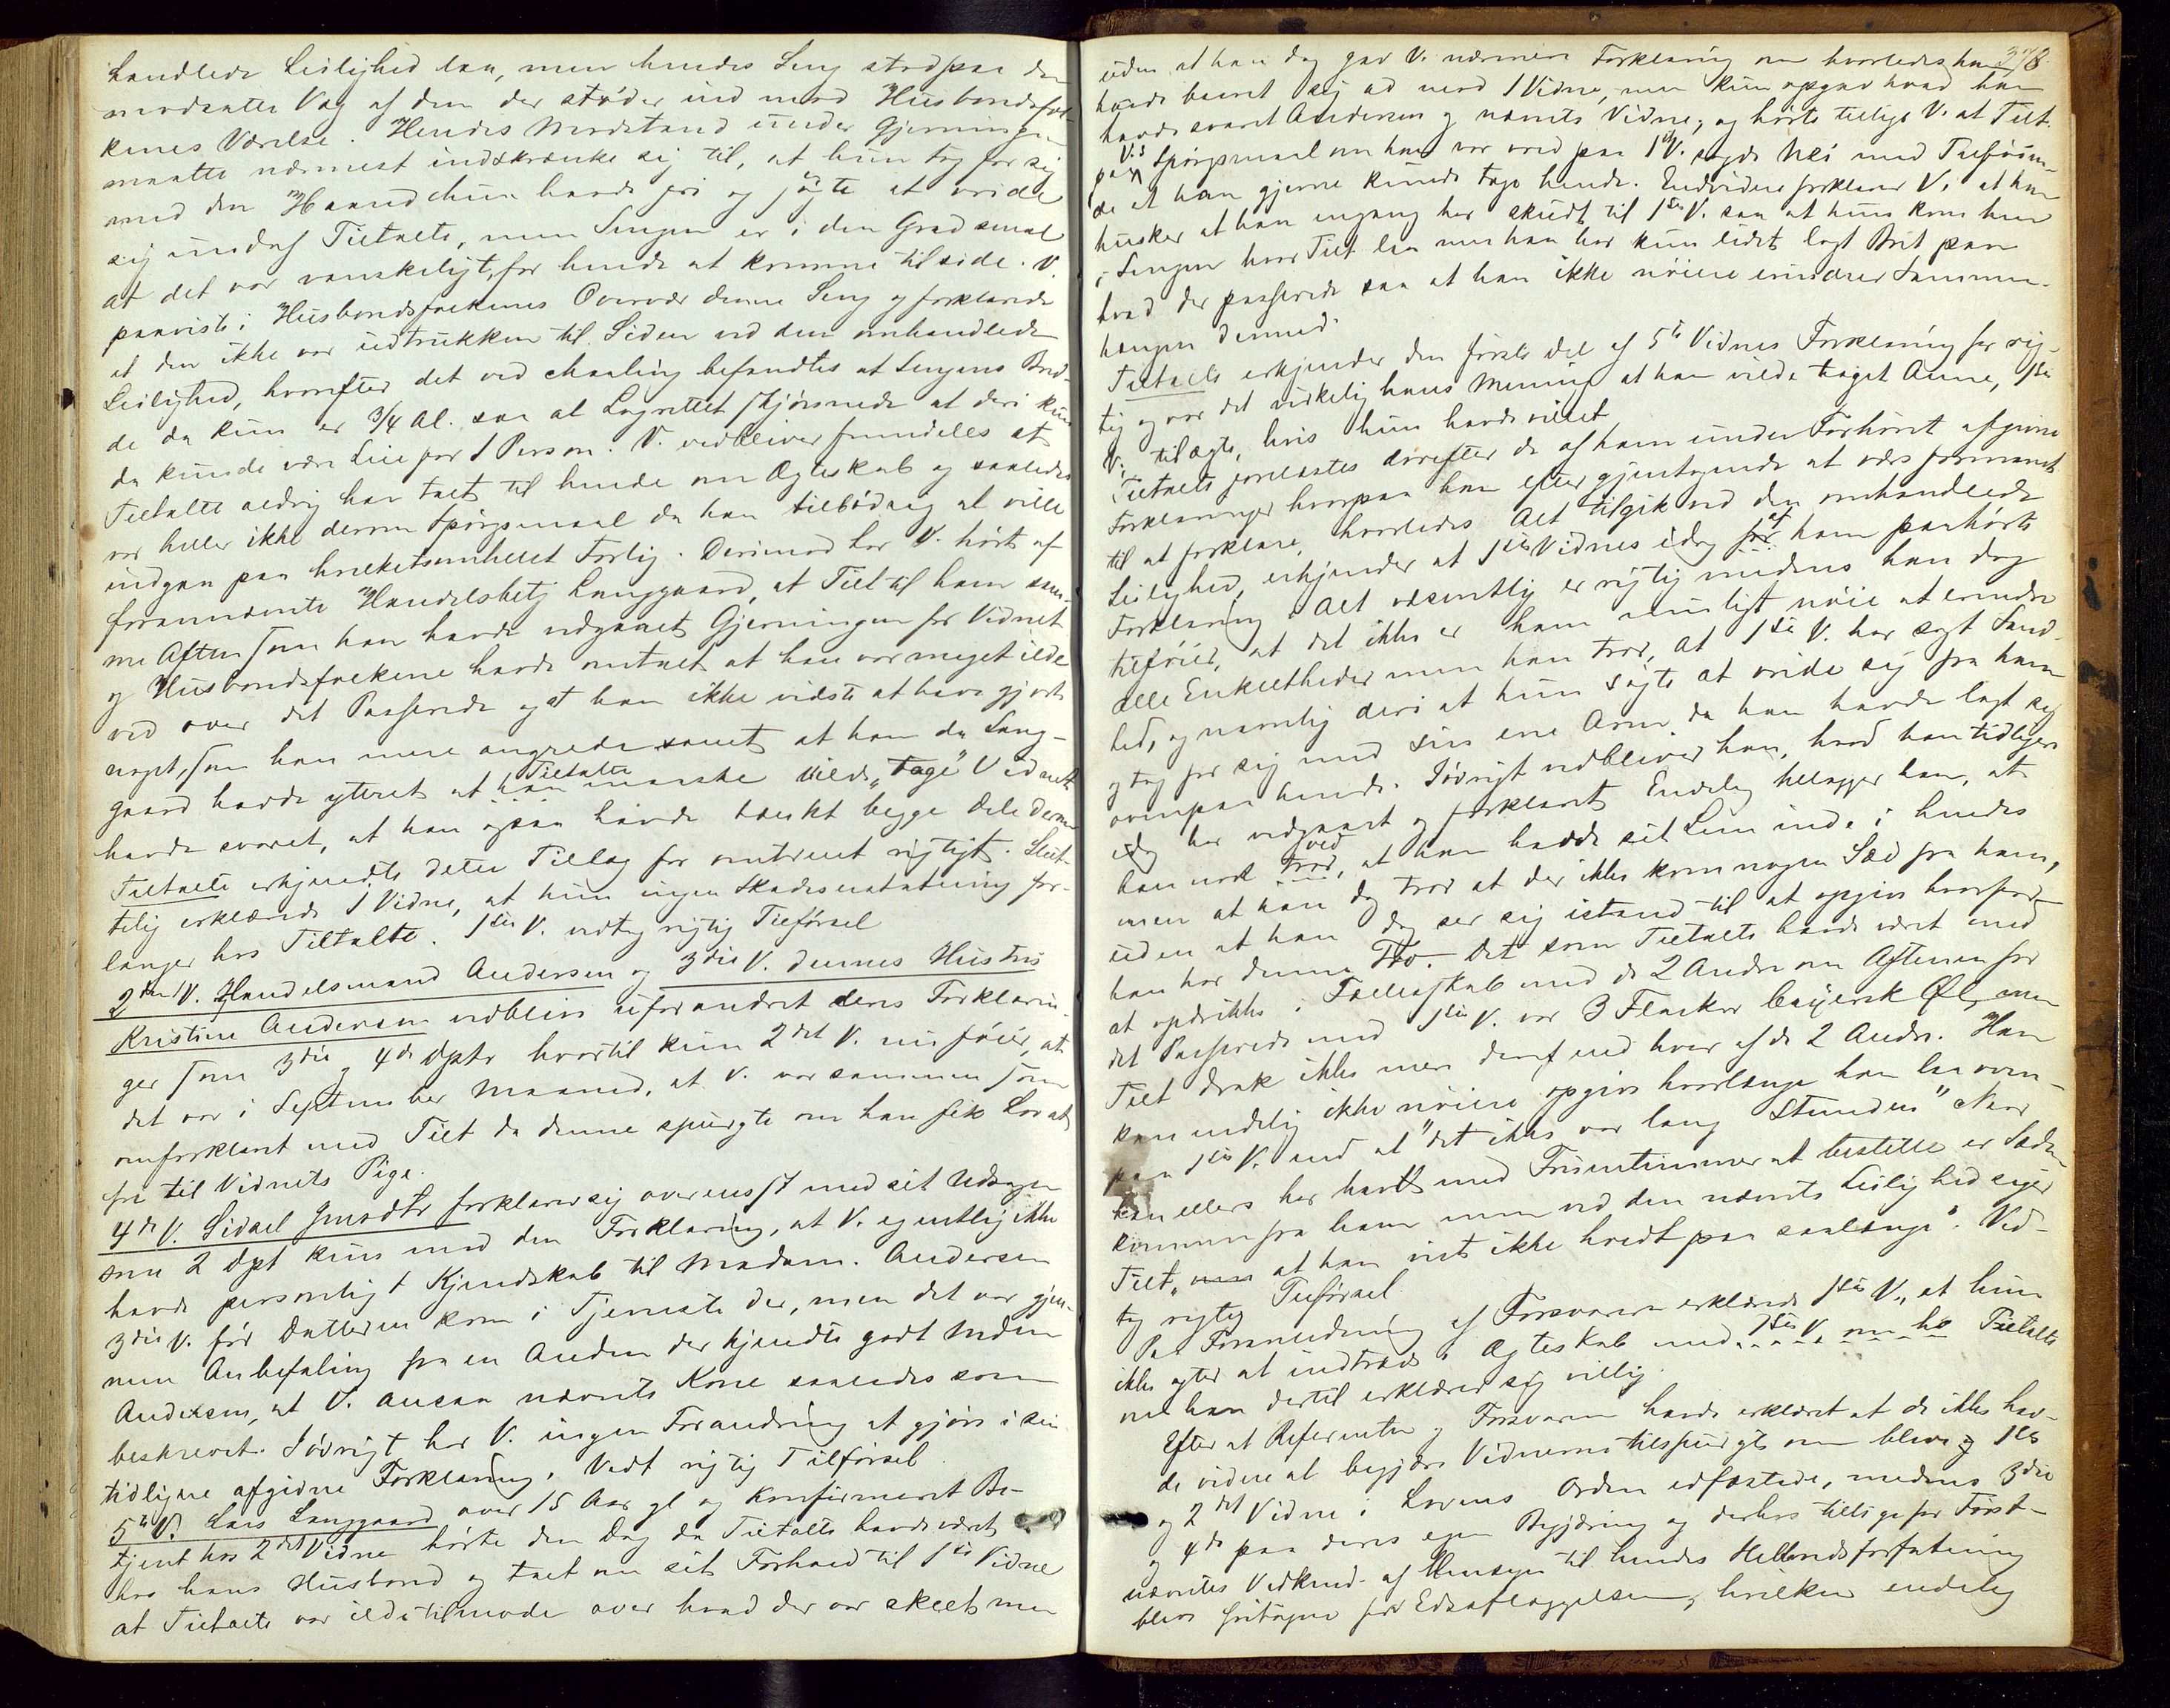 handlede Leilighed laa, men hendes Seng stod paa den
modsatte Væg af den der støder ind mod Husbondsfol-
kenes Værelse. Hendes Modstand under Gjerningen
maatte nærmest indskrænke sig til, at hun tog for sig
med den Haand hun havde fri og søgte at vride
sig undaf Tiltalte, men Sengen er i den Grad smal
at det var vanskeligt for hende at komme tilside. V.
paaviste i Husbondsfolkenes Overvær denne Seng og forklarede
at den ikke var udtrukken til Siden ved den omhandlede
Leilighed, hvorefter det ved Maaling befandtes at Sengens Bred-
de da kun er 3/4 Al. saa at Lagrettet skjønnede at deri kun
da kunde være Leie for 1 Person. V. vedbliver fremdeles at
Tiltalte aldrig har talt til hende om Ægteskab og saaledes
var heller ikke derom Spørgsmaal da han tilbød sig at ville
indgaa paa hvilketsomhelst Forlig. Derimod har V. hørt af
forannævnte Handelsbetj Langgaard, at Tilt til ham sam-
me Aften som han havde vedgaaet Gjerningen for Vidnet
og Husbondsfolkene havde omtalt at han var meget ilde
ved over det Passerede og at han ikke vidste at have gjort
noget, som han mere angrede samt at han da Lang-
gaard havde ytret at han Tiltalte maaske vilde "tage" Vidnet
havde svaret, at han ogsaa havde tænkt begge Dele derom
Tiltalte erkjendte dette Tillæg for omtrent rigtigt. Slut-
telig erklærede 1 Vidne, at hun ingen Skadeserstatning for-
langer hos Tiltalte. 1ste V. vedtog rigtig Tilførsel
2det V. Handelsmand Andersen og 3die V. dennes Hustru
Kristine Andersen vedblive uforandret deres Forklarin-
ger som 3die og 4de Dptr hvortil kun 2det V. nu føier, at
det var i September Maaned, at V. var sammen som
omforklaret med Tilt da denne spurgte om han fik Lov at
fri til Vidnets Pige.
4de V. Sidsel Jensdtr forklarer sig overensst med sit Udsagn
som 2 Dpt kun med den Forklaring, at V. egentlig ikke
havde personligt Kjendskab til Madam. Andersen
3die V. før Datteren kom i Tjeneste der, men det var gjen-
nem Anbefaling fra en Anden der kjendte godt Mdm
Andersen, at V. ansaa nævnte Kone saaledes som
beskrevet. Iøvrigt har V. ingen Forandring at gjøre i sin
tidligere afgivne Forklaring. Vedt rigtig Tilførsel
5te V. Lars Langgaard over 15 Aar gl og konfirmeret Be-
tjent hos 2det Vidne hørte den Dag da Tiltalte havde været
hos hans Husbond og talt om sit Forhold til 1ste Vidne
at Tiltalte var ilde tilmode over hvad der var skeet men
378
uden at han dog gav V. nærmere Forklaring om hvorledes han
havde baaret sig ad med 1 Vidne, men kun opgav hvad han
havde svaret Andersen og nævnte Vidne, og hørte tillige V. at Tilt.
paa V.s Spørgsmaal om han var vred paa 1ste V. sagde Nei med Tilføien-
de at han gjerne kunde tage hende. Endvidere forklarer V. at han
husker at han engang har skudt til 1ste V. saa at hun kom hen
i Sengen hvor Tilt laa men han har kun lidet lagt Brit paa
hvad der passerede saa at han ikke nøiere erindrer Sammen-
hængen dermed.
Tiltalte erkjender den første Del af 5te Vidnes Forklaring for rig-
tig og var det virkelig hans Mening at han vilde taget Anne, 1ste
V. tilægte, hvis hun havde villet
Tiltalte forelæstes derefter de af ham under Forhøret afgivne
Forklaringer hvorpaa han efter gjentagende at være formanet
til at forklare, hvorledes Alt tilgik ved den omhandlede
Leilighed, erkjender at 1ste Vidnes idag for af ham paahørte
Forklaring i Alt væsentlig er rigtig medens han dog
tilføier, at det ikke er ham muligt nøie at erindre
alle Enkeltheder men han tror, at 1ste V. har sagt Sand-
hed, og navnlig deri at hun søgte at vride sig fra ham
og tog for sig med sin ene Arm da han havde lagt sig
ovenpaa hende. Iøvrigt vedbliver han, hvad han tidligere
idag har vedgaaet og forklaret. Endelig tillægger han, at
han nok tror ved, at han havde sit Lem inde i hendes
men at han dog tror at der ikke kom nogen Sæd fra ham,
uden at han dog ser sig istand til at opgive hvorfor
han har denne Tro. Det som Tiltalte havde været med
at opdrikke i Fællesskab med de 2 Andre om Aftenen før
det Passerede med 1ste V. var 3 Flasker baiersk Øl, men
Tilt drak ikke mere deraf end hver af de 2 Andre. Han
kan endelig ikke nøiere opgive hvorlænge han laa oven-
paa 1ste V. end at "det ikke var lang Stunden" Naar
han ellers har havt med Fruentimmer at bestille er Sæden
kommen fra ham men ved den nævnte Leilighed siger
Tilt, "men at han vist ikke holdt paa saalænge". Ved-
tog rigtig Tilførsel.
Paa Foranledning af Forsvareren erklærede 1ste V., at hun
ikke agter at indtræde i Ægteskab med 1ste V. om ho Tiltalte
om han dertil erklærer sig villig.
Efter at Referenten og Forsvareren havde erklæret at de ikke hav-
de videre at begjære Vidnerne tilspurgte om bleve og 1ste
og 2det Vidne i Lovens Orden edfæstede, medens 3die
og 4de paa deres egen Begjæring og derhos tillige for Først-
nævntes Vedkmd. af Hensyn til hendes Helbredsforfatning
bleve fritagne for Edsaflæggelsen, hvilken endelig